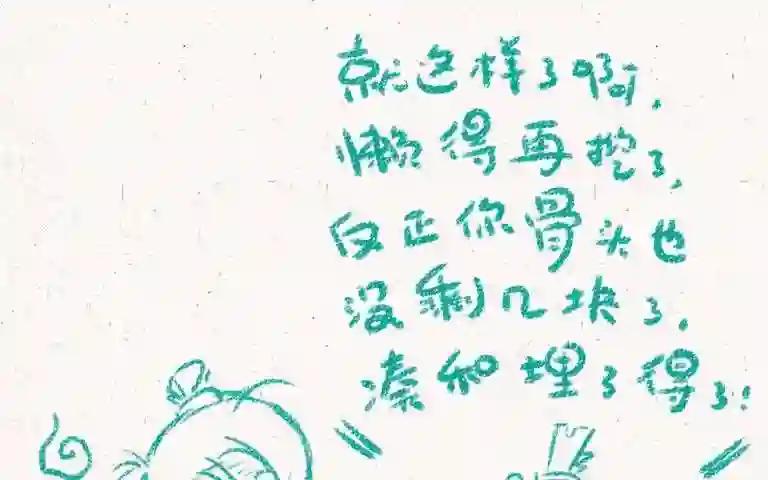 就这样了啊,
懒得再挖了,
反正你骨头也
没剩几块了.
凑和埋了得了!